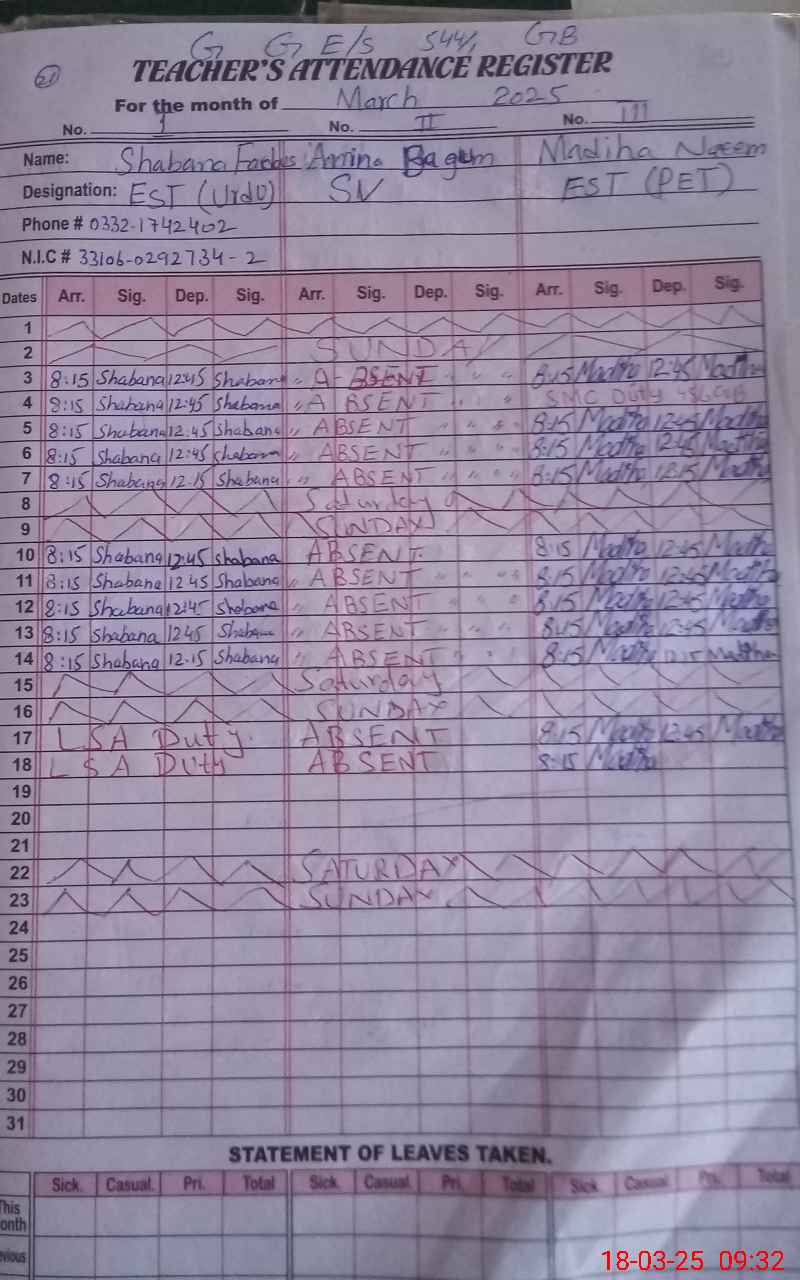 61
G G E/S 544/ GB
TEACHER'S ATTENDANCE REGISTER
For the month of March 2025
No. I No. II No. III
Name: Shabana Amina Bagum Madiha Naeem
Designation: EST (Urdu) SV EST (PET)
Phone # 0332-1742402
N.I.C # 33106-0292734-2
Dates Arr. Sig. Dep. Sig. Arr. Sig. Dep. Sig. Arr. Sig. Dep. Sig.
1
2 SUNDAY
3 8:15 Shabana 12:45 Shabana " A-BSENT " " " 8:15 Madiha 12:45 Madiha
4 8:15 Shabana 12:45 Shabana " ABSENT " " SMC DUTY
5 8:15 Shabana 12.45 Shabana " ABSENT " " " 8:15 Madiha 12:45 Madiha
6 8:15 Shabana 12:45 Shabana " ABSENT " " " 8:15 Madiha 12:45 Madiha
7 8:15 Shabana 12.15 Shabana " ABSENT " " " 8:15 Madiha 12:15 Madiha
8 Saturday
9 SUNDAY
10 8:15 Shabana 12:45 Shabana ABSENT. 8:15 Madiha 12:45 Madiha
11 8:15 Shabana 12 45 Shabana " ABSENT " " " 8:15 Madiha 12:45 Madiha
12 8:15 Shabana 12:45 Shabana " ABSENT " " " 8:15 Madiha 12:45 Madiha
13 8:15 Shabana 1245 Shabana " ABSENT " " " 8:15 Madiha 12:45 Madiha
14 8:15 Shabana 12.15 Shabana " ABSENT " " 8:15 Madiha 12:15 Madiha
15 Saturday
16 SUNDAY
17 LSA Duty. ABSENT 8:15 Madiha 12:45 Madiha
18 LSA Duty ABSENT 8:15 Madiha
19
20
21
22 SATURDAY
23 SUNDAY
24
25
26
27
28
29
30
31
STATEMENT OF LEAVES TAKEN.
Sick. Casual. Pri. Total Sick. Casual. Pri. Total Sick Casual. Pri. Total
This
onth
evious
18-03-25 09:32